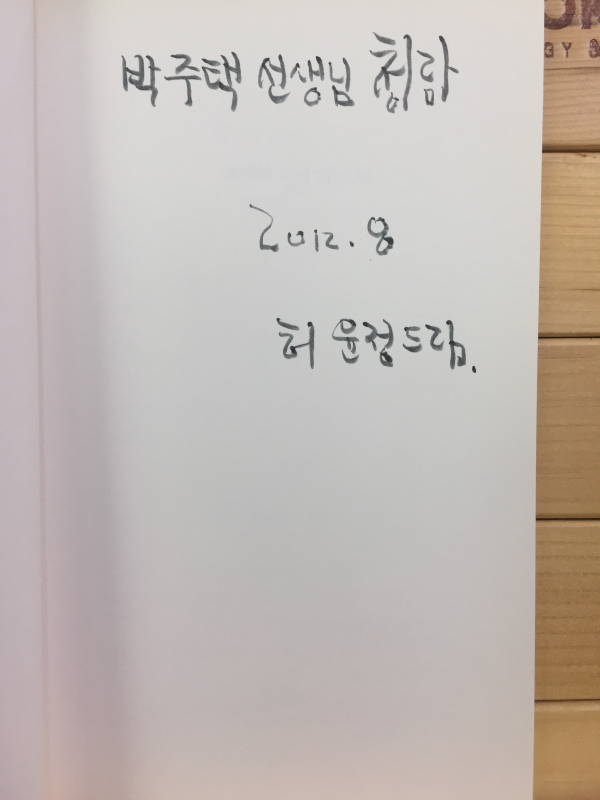 박주택 선생님 청람
2012. 8
허윤정드림.